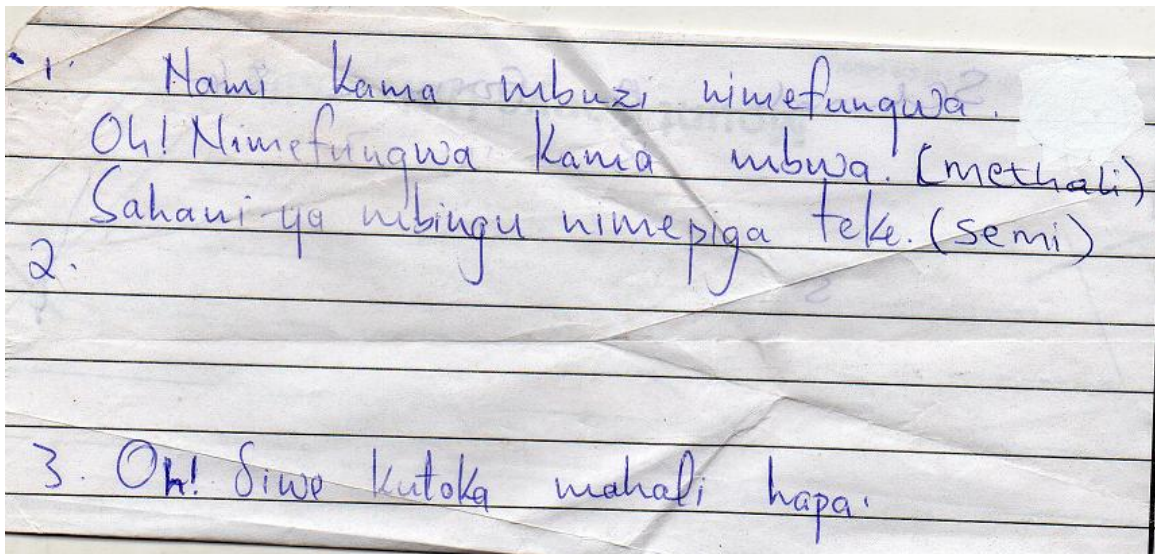 1. Nami kama mbuzi nimefungwa.
Oh! Nimefungwa kama mbwa. (methali)
Sahani ya mbingu nimepiga teke. (semi)
2.
3. Oh! Siwe kutoka mahali hapa.